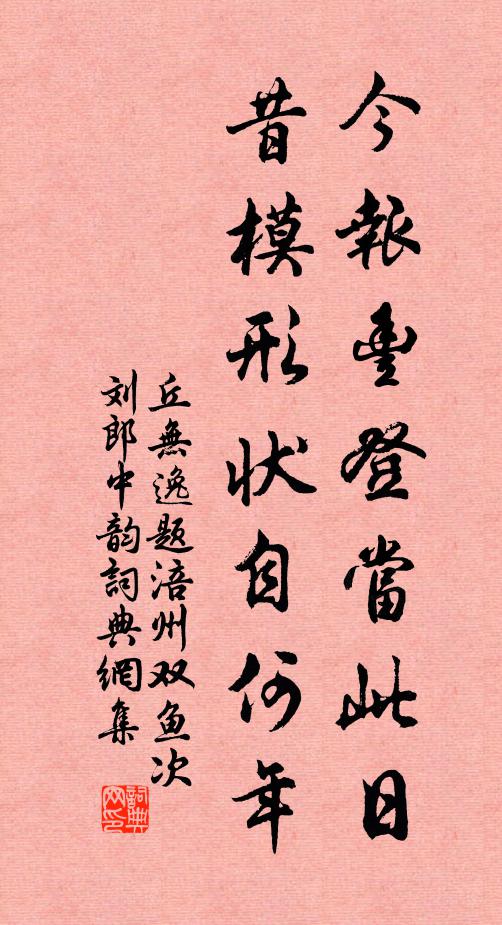 今報豊登當此日
昔模形状自何年
丘無逸题涪州双鱼次
刘郎中韵詞典網集
詞典网印